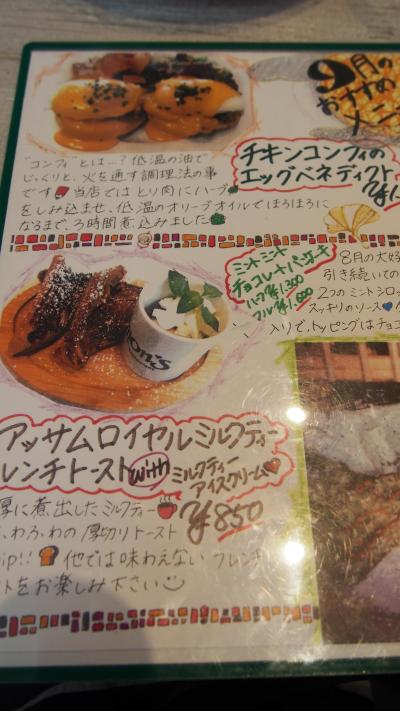 9月の
おすすめ
メニ
"コンフィ"とは…?低温の油で
じっくりと、火を通す調理法の事
です 当店ではとり肉にハーブ
をしみ込ませ、低温のオリーブオイルでほろほろに
なるまで、3時間煮込みました
チキンコンフィの
エッグベネディクト
¥1
ミントミント
チョコレートパンケーキ
ハーフ¥1,300
フル¥1,600
8月の大好
引き続いての
2つのミントシロッ
スッキリのソース
入りで、トッピングはチョコ
アッサムロイヤルミルクティー
レンチトースト with ミルクティー
アイスクリーム
¥850
厚に煮出したミルクティー
、わふわの厚切りトースト
ip!! 他では味わえないフレンチ
ストをお楽しみ下さい